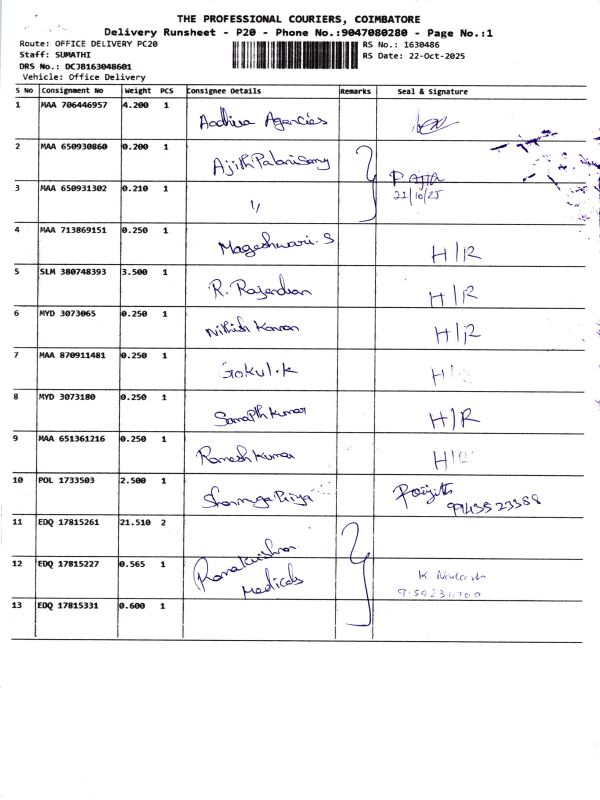 THE PROFESSIONAL COURIERS, COIMBATORE
Delivery Runsheet - P20 - Phone No.:9047080280 - Page No.:1
Route: OFFICE DELIVERY PC20
Staff: SUMATHI
DRS No.: DCJB163048601
Vehicle: Office Delivery
RS No.: 1630486
RS Date: 22-Oct-2025
S No Consignment No Weight PCS Consignee Details Remarks Seal & Signature
1 MAA 706446957 4.200 1 Aadhira Agencies
2 MAA 650930860 0.200 1 Ajith Palanisamy
3 MAA 650931302 0.210 1 "
22/10/25
4 MAA 713869151 0.250 1 Mageshwari. S H/R
5 SLM 380748393 3.500 1 R. Rajendran H/R
6 MYD 3073065 0.250 1 Nithish Kannan H/R
7 MAA 870911481 0.250 1 Gokul.K H/R
8 MYD 3073180 0.250 1 Sampath Kumar H/R
9 MAA 651361216 0.250 1 Ramesh Kumar H/R
10 POL 1733503 2.500 1 Shanmuga Priya 99435 23388
11 EDQ 17815261 21.510 2
12 EDQ 17815227 0.565 1 Ramakrishna Medicals
13 EDQ 17815331 0.600 1